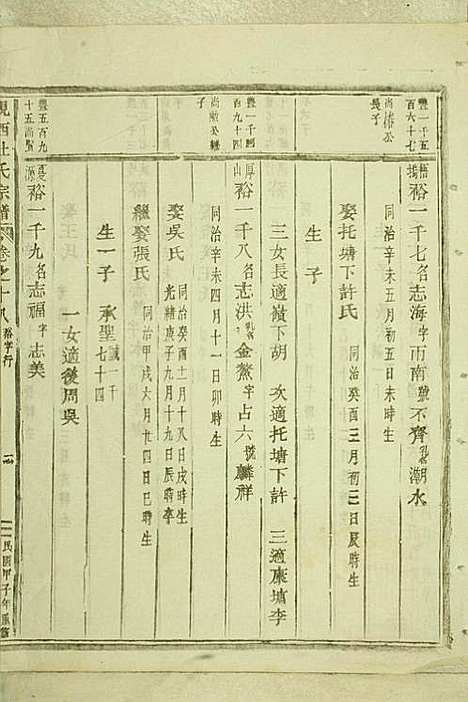 豐一千五百六十七
尚椿公長子
裕一千七名志海字雨南號不齊乳名潮水
同治辛未五月初五日未時生
娶托塘下許氏
同治癸酉三月初三日辰時生
生 子
三女長適嶺下胡 次適托塘下許 三適康塘李
豐一千百九十四
尚 公 子
厚山裕一千八名志洪乳名金鰲字占六號麟祥
同治辛未四月十一日卯時生
娶吳氏
同治癸酉十二月十八日戌時生
光緒庚子九月十九日辰時卒
繼娶張氏
同治甲戌六月廿四日巳時生
生一子 承聖誠一千七十四
一女適後周吳
豐五百九十五尚賢
夏源裕一千九名志福字志美
峴西杜氏宗譜
卷之十八
裕字行
民國甲子年重修